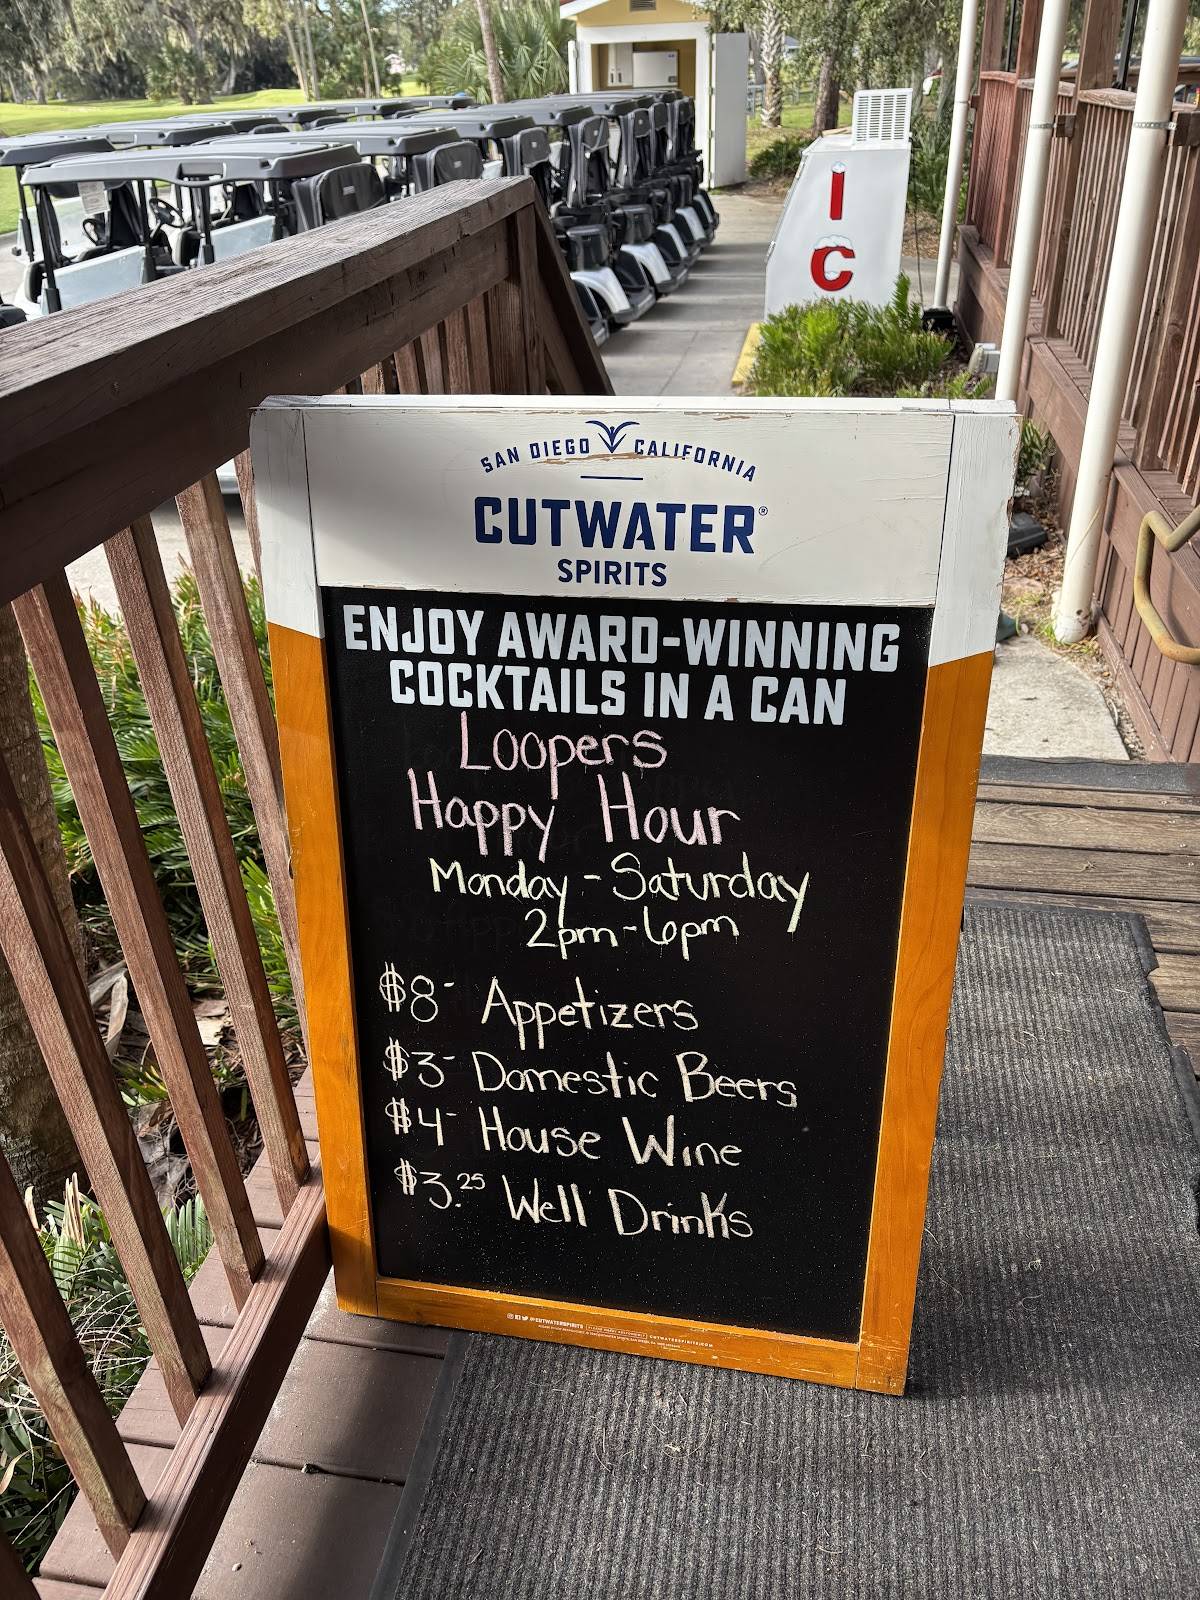 I
C
SAN DIEGO CALIFORNIA
CUTWATER®
SPIRITS
ENJOY AWARD-WINNING
COCKTAILS IN A CAN
Loopers
Happy Hour
Monday - Saturday
2pm - 6pm
$8- Appetizers
$3- Domestic Beers
$4- House Wine
$3.25 Well Drinks
@CUTWATERSPIRITS PLEASE ENJOY RESPONSIBLY CUTWATERSPIRITS.COM